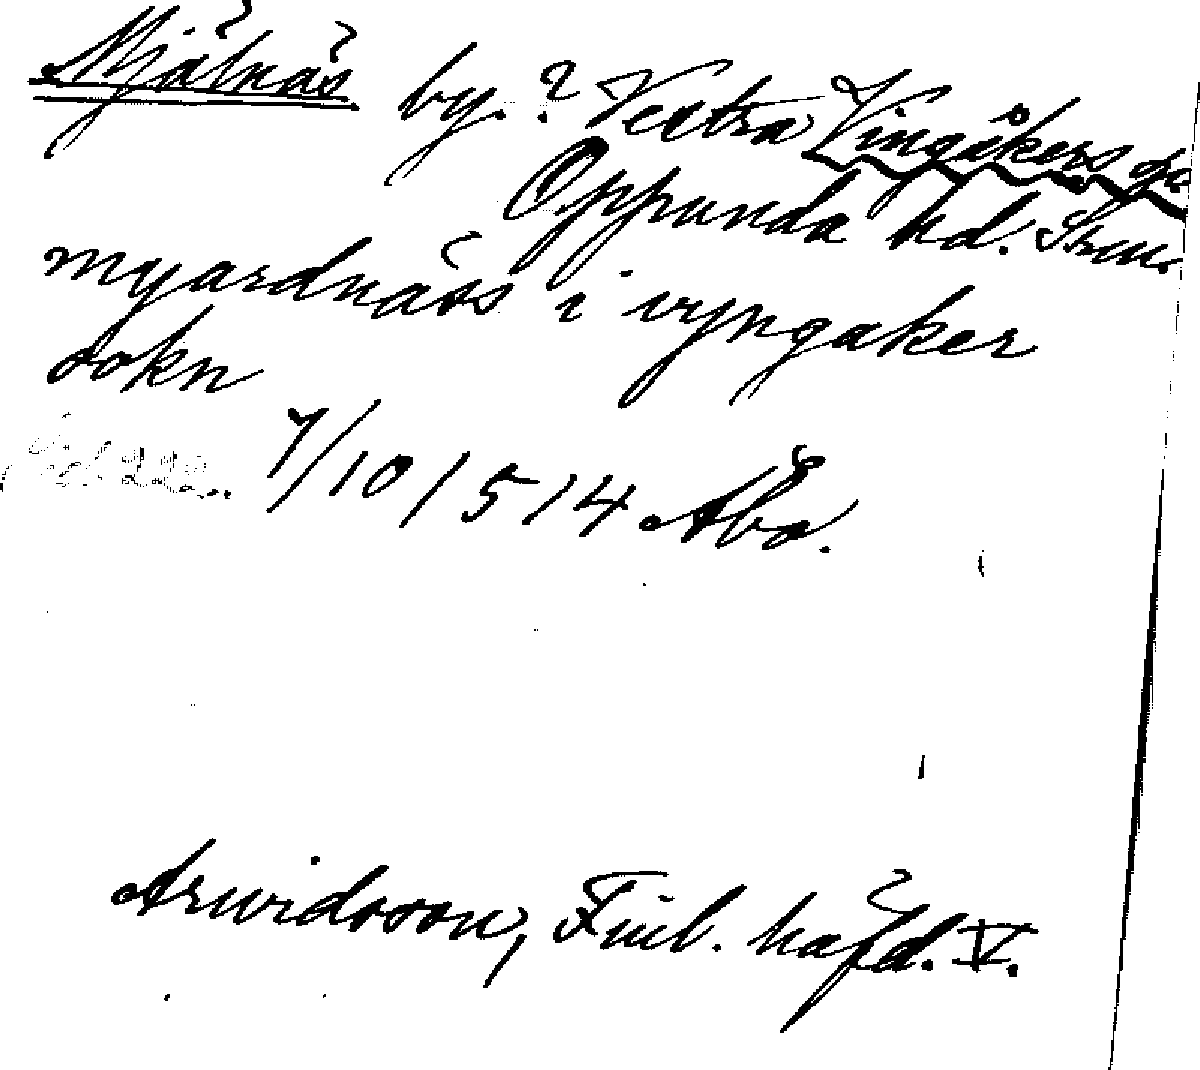 Mjälnäs by.? Vestra Vingåkers sn
Oppunda hd. Srm.
myardnäss i vyngaker
sokn
7/10 1514 Åbo.
Arwidsson, Finl. häfd. V.